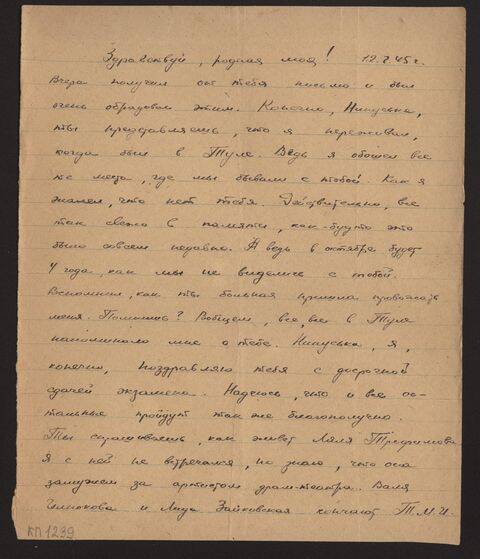 Здравствуй, родная моя! 12.7.45 г.
Вчера получил от тебя письмо и был
очень обрадован этим. Конечно, Нинуська,
ты представляешь, что я переживал,
когда был в Туле. Ведь я обошел все
те места, где мы бывали с тобой. Как я
жалел, что нет тебя. Действительно, все
так свежо в памяти, как-будто это
было совсем недавно. А ведь в октябре будет
4 года, как мы не виделись с тобой.
Вспомнил, как ты больная пришла провожать
меня. Помнишь? Вобщем, все, все в Туле
напоминало мне о тебе. Нинуська, я,
конечно, поздравляю тебя с досрочной
сдачей экзамена. Надеюсь, что и все ос-
тальные пройдут так же благополучно.
Ты спрашиваешь, как живет Ляля Трофимова
Я с ней не встречался, но знаю, что она
замужем за артистом драм-театра. Валя
и Лида Зайковская кончают Т.М.И.
КП 1239